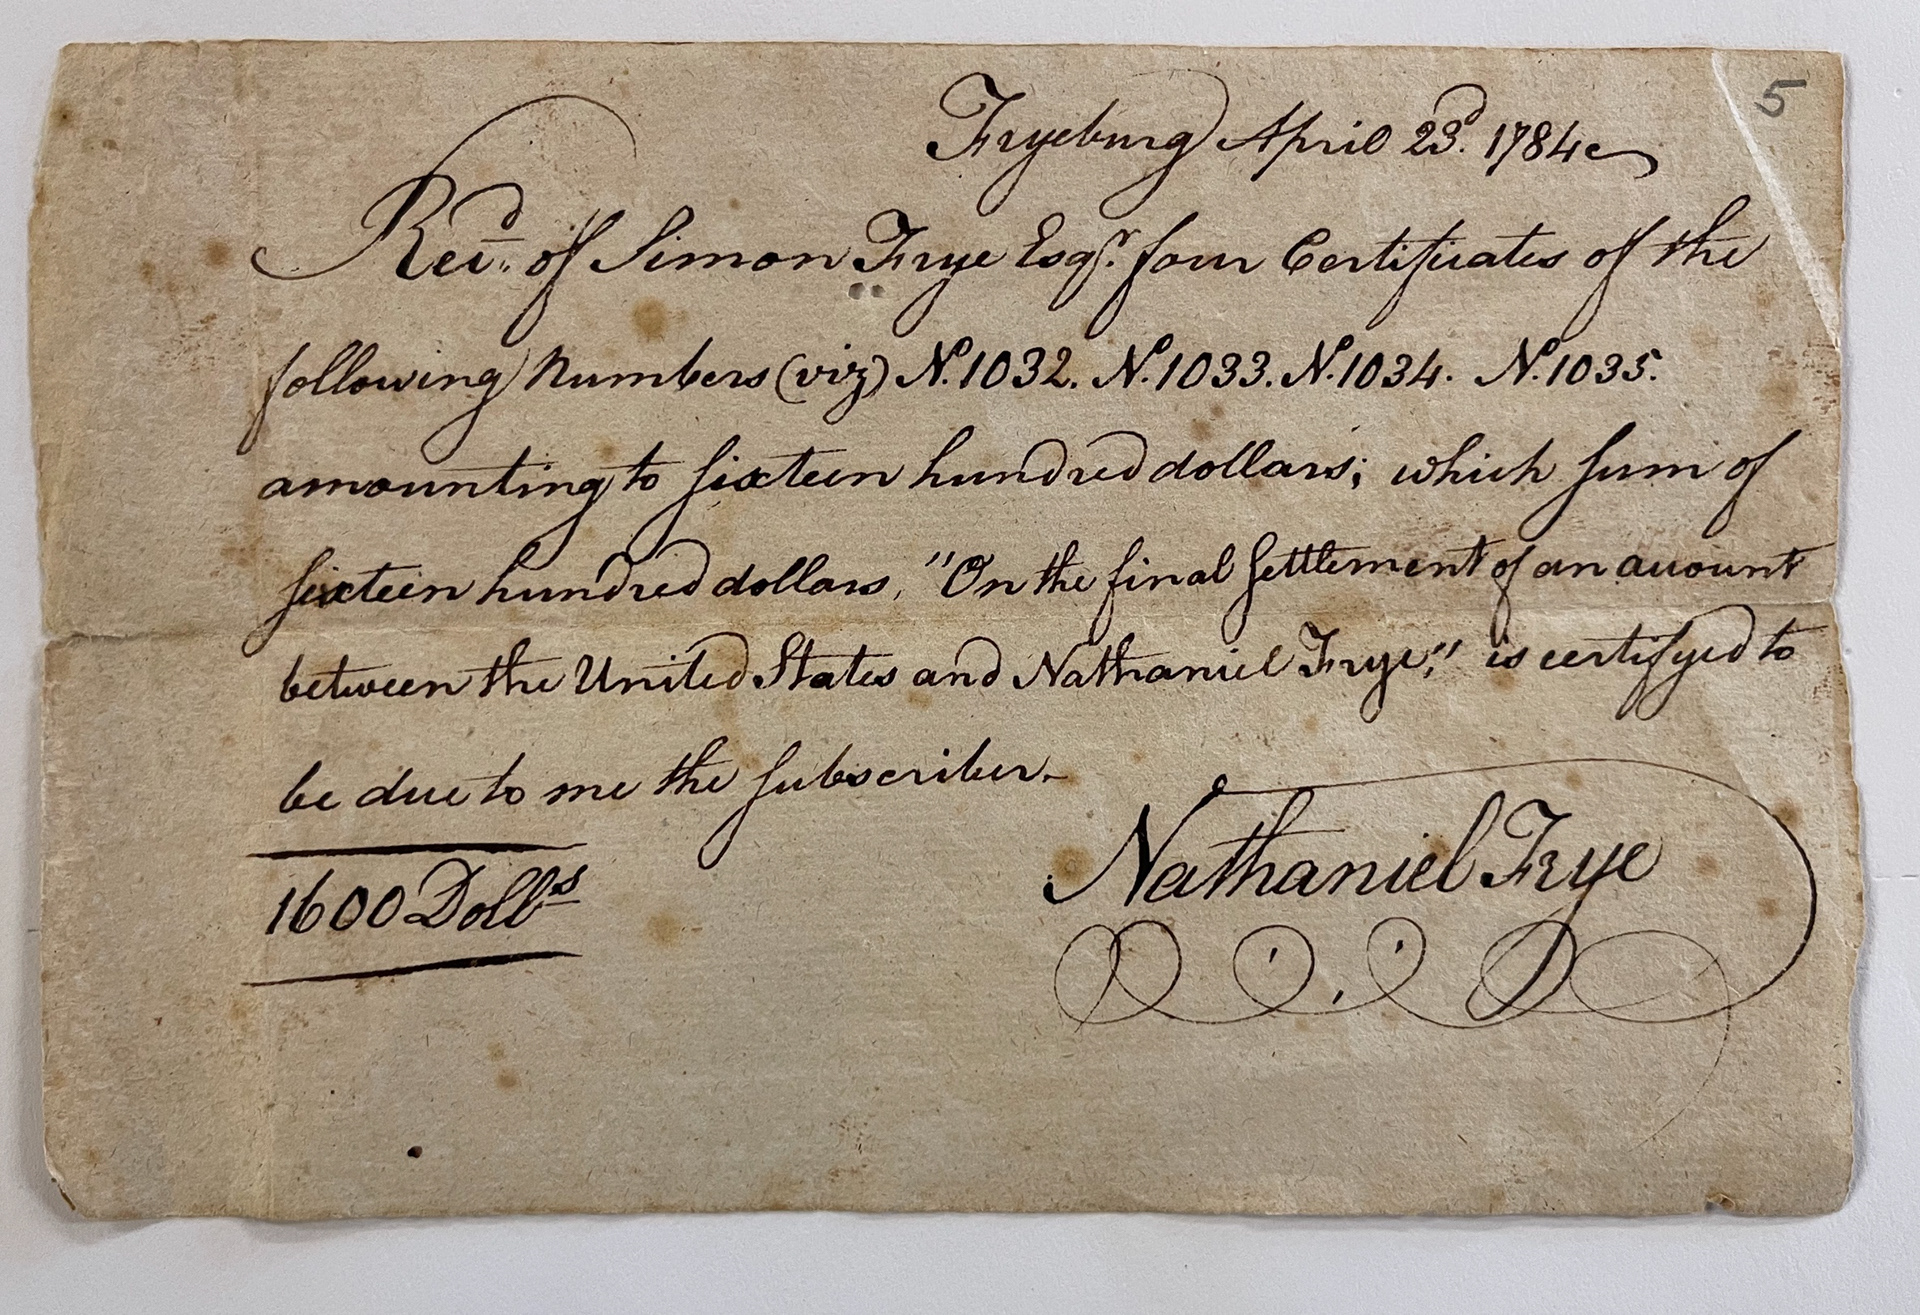 5
Fryeburg April 23d. 1784
Recd. of Simon Frye Esqr. four Certificates of the
following Numbers (viz) No. 1032. No. 1033. No. 1034. No. 1035.
amounting to sixteen hundred dollars; which sum of
sixteen hundred dollars, "On the final settlement of an account
between the United States and Nathaniel Frye," is certifyed to
be due to me the subscriber.
1600 Dolls
Nathaniel Frye